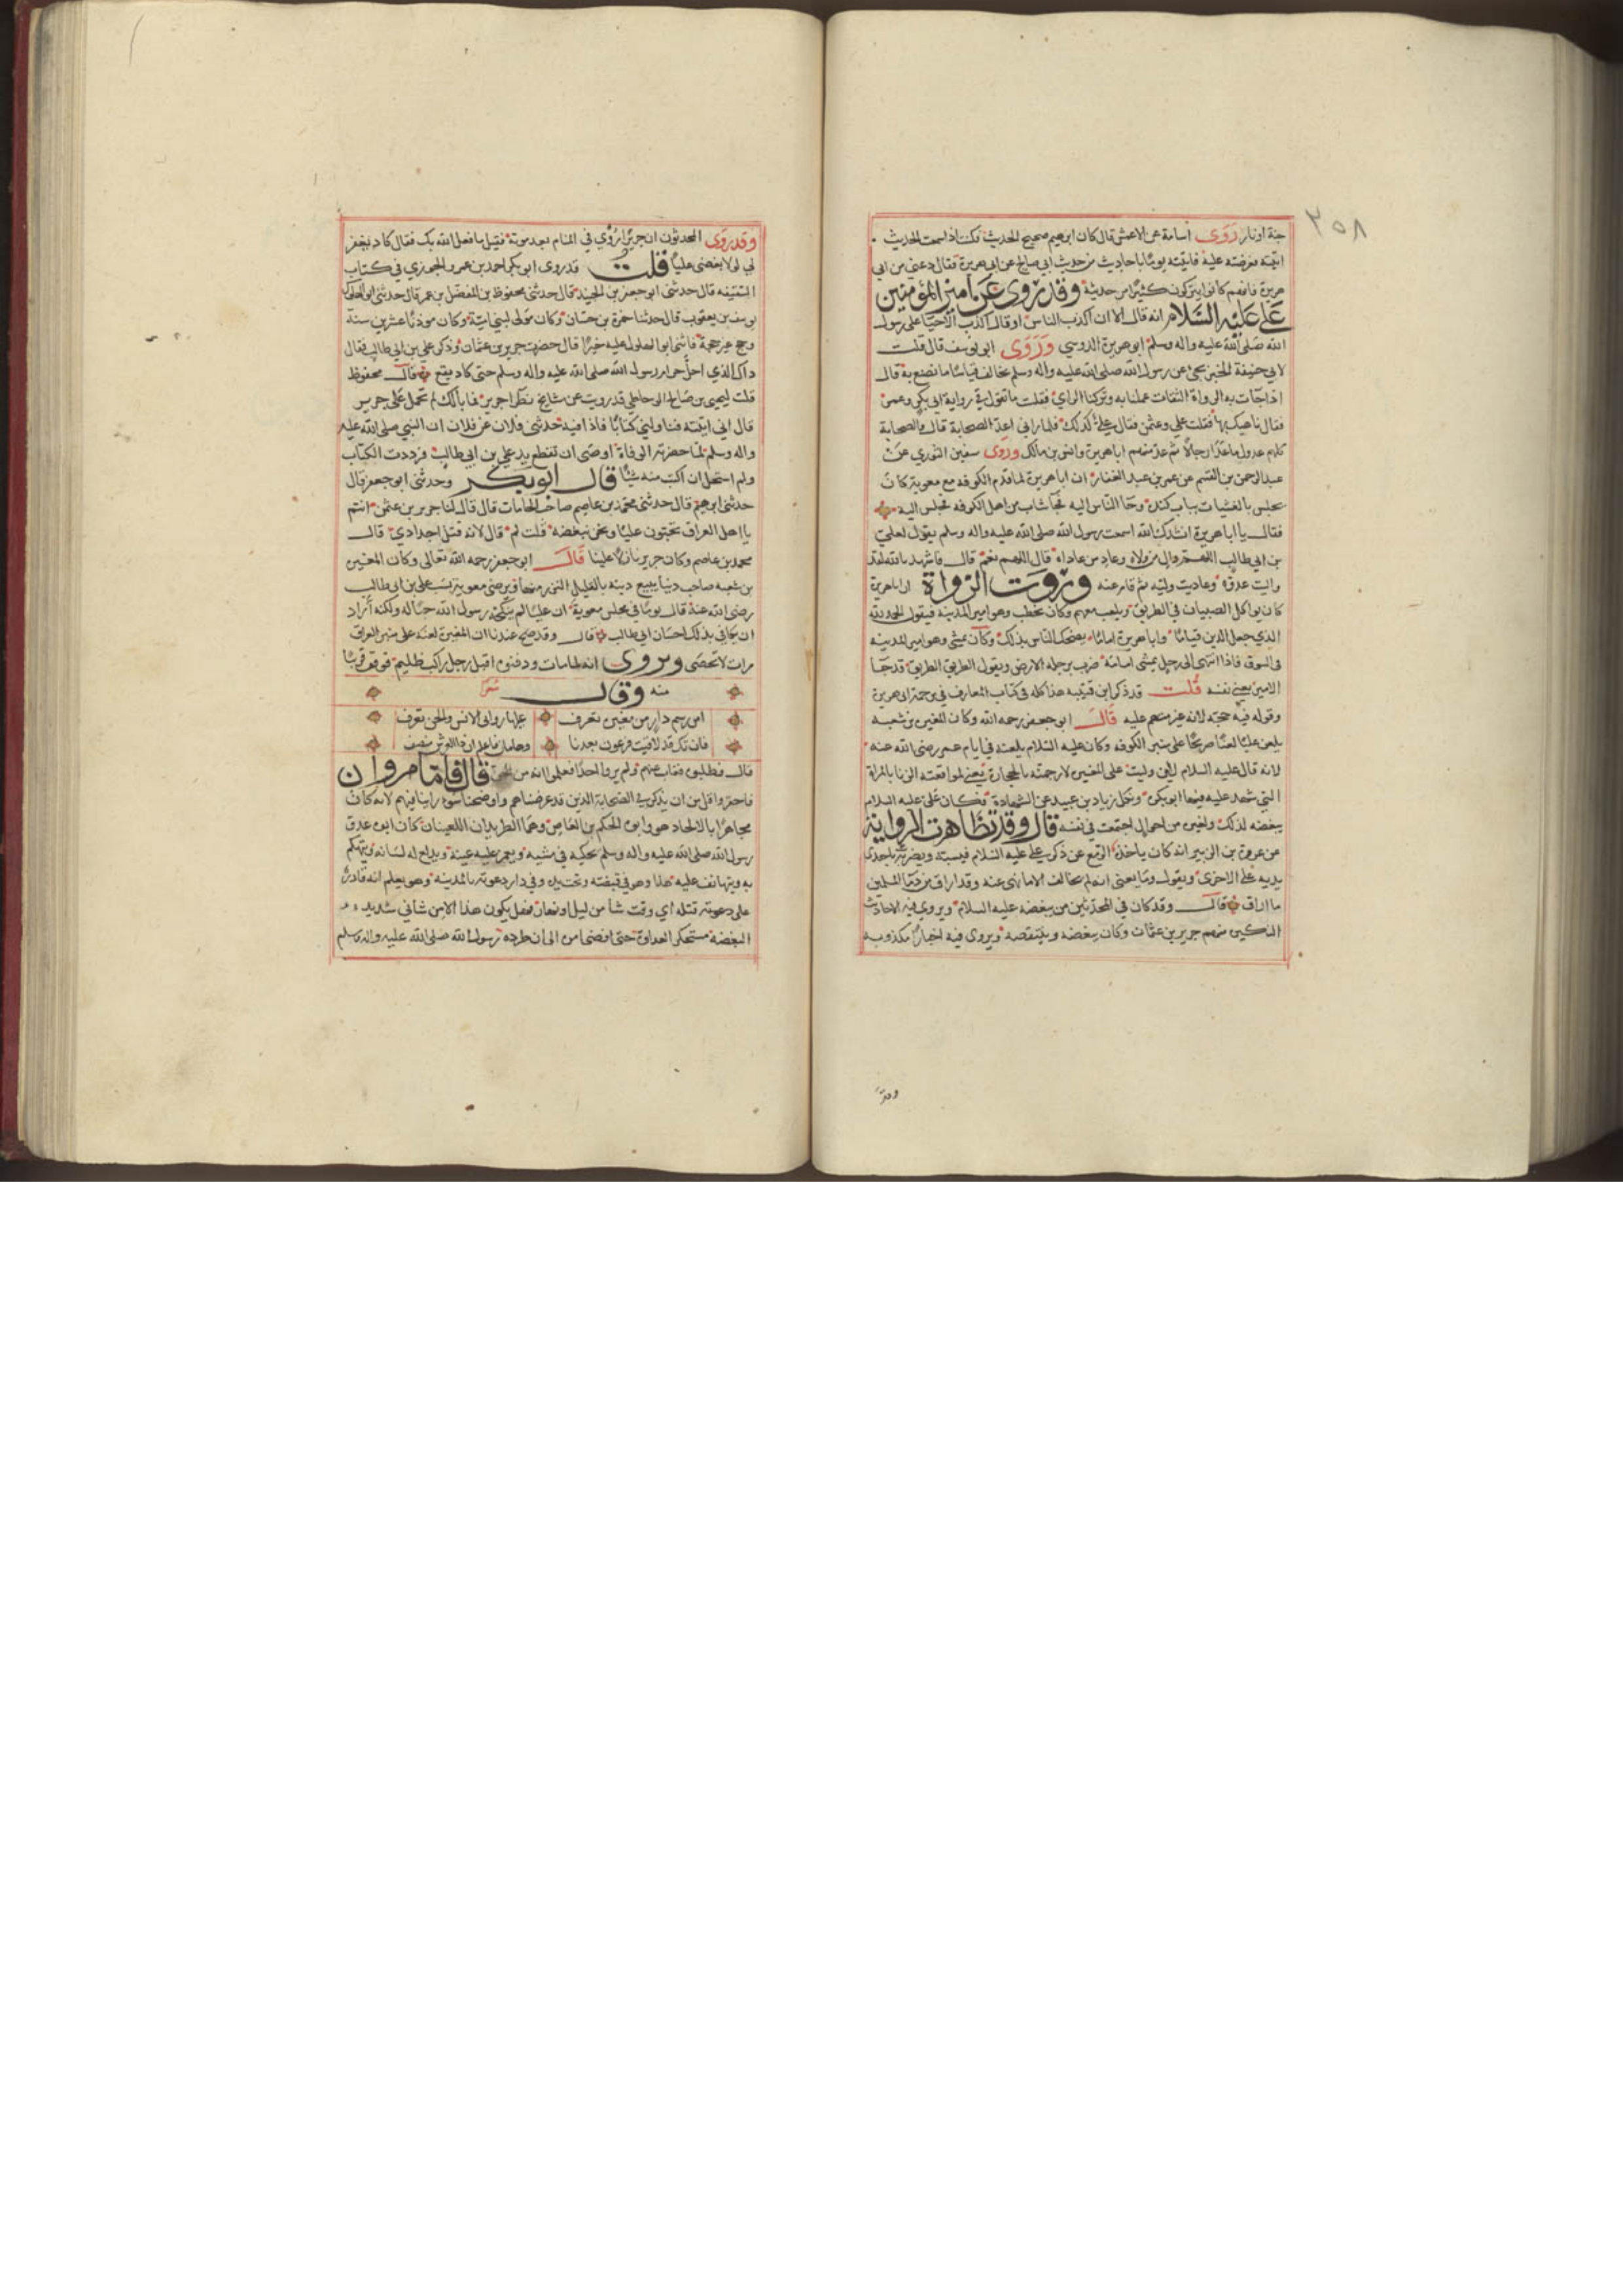 ٣٥٨
جنة او نار روى اسامة عن الاعمش قال كان ابرهيم صحيح الحديث فكنت اذا سمعت الحديث
اتيته فعرضته عليه فاتيته يوما باحاديث من حديث ابي صالح عن ابي هريرة فقال دعني من ابي
هريرة فانهم كانوا يتركون كثيرا من حديثه وقد روى عن امير المؤمنين
علي عليه السلام انه قال الا ان اكذب الناس او قال اكذب الاحيا على رسول
الله صلى الله عليه واله وسلم ابو هريرة الدوسي وروى ابو يوسف قال قلت
لابي حنيفة الخبر يجئ عن رسول الله صلى الله عليه واله وسلم يخالف قياسنا ما نصنع به قال
اذا جآت به الرواة الثقات عملنا به وتركنا الراي فقلت ما تقول في رواية ابي بكر وعمر
فقال ناهيك بهما فقلت علي وعثمن فقال علي كذلك فلما راني اعد الصحابة قال والصحابة
كلهم عدول ما عدا رجالا ثم عد منهم ابا هريرة وانس بن مالك وروى سفين الثوري عن
عبد الرحمن بن القسم عن عمر بن عبد الغفار ان ابا هريرة لما قدم الكوفه مع معوية كان
يجلس بالعشيات بباب كنده وجا الناس اليه فجا شاب من اهل الكوفه فجلس اليه
فقال يا ابا هريرة انشدك الله اسمعت رسول الله صلى الله عليه واله وسلم يقول لعلي
بن ابي طالب اللهم وال من والاه وعاد من عاداه قال اللهم نعم قال فاشهد بالله لقد
واليت عدوه وعاديت وليه ثم قام عنه وروت الرواة ان ابا هريرة
كان يواكل الصبيان في الطريق ويلعب معهم وكان يخطب وهو امير المدينه فيقول الحمد لله
الذي جعل الدين قياما وابا هريرة اماما يضحك الناس بذلك وكان يمشي وهو امير المدينه
في السوق فاذا انتهى الى رجل يمشي امامه ضرب برجله الارض ويقول الطريق الطريق قد جا
الامير يعني نفسه قلت قد ذكر ابن قتيبه هذا كله في كتاب المعارف في ترجمة ابي هريرة
وقوله فيه حجه لانه غير متهم عليه قال ابو جعفر رحمه الله وكان المغيره بن شعبه
يلعن عليا لعنا صريحا على منبر الكوفه وكان عليه السلام بلعنه في ايام عمر رضي الله عنه
لانه قال عليه السلام لان وليت على المغيره لارجمنه بالحجارة يعني لمواقعته الزنا بالمراة
التي شهد عليه فيها ابو بكره ونكل زياد بن عبيد عن الشهادة فكان على عليه السلام
يبغضه لذلك ولغيره من احوال اجتمعت في نفسه قال وقد تظاهرت الرواية
عن عروة بن الزبير انه كان ياخذه الزمع عن ذكر علي عليه السلام فيسبه ويضرب باحدى
يديه على الاخرى ويقول وما يغني انه لم يخالف الا ما نهى عنه وقد اراق من دما المسلمين
ما اراق قال وقد كان في المحدثين من يبغضه عليه السلام ويروي فيه الاحاديث
المنكره منهم حريز بن عثمان وكان يبغضه ويتنقصه ويروى فيه اخبارا مكذوبه
وقد
وقد روى المحدثون ان حريزا رؤي في المنام بعد موته فقيل ما فعل الله بك فقال كاد يغفر
لي لولا بغضي عليا قلت قد روى ابو بكر احمد بن عبد العزيز الجوهري في كتاب
السقيفه قال حدثني ابو جعفر بن الجنيد قال حدثني محفوظ بن المفضل بن عمر قال حدثني ابو البهلول
يوسف بن يعقوب قال حدثنا حمزة بن حسان وكان مولى لبني امية وكان موذنا عشرين سنة
وحج غير حجة فاثنى ابو البهلول عليه خيرا قال حضرت حريز بن عثمان وذكر علي بن ابي طالب فقال
ذاك الذي احل حرم رسول الله صلى الله عليه واله وسلم حتى كاد يقع قال محفوظ
قلت ليحيى بن صالح الوحاظي قد رويت عن مشايخ نظرا حريز فما بالك لم تحمل على حريز
قال اني اتيته فناولني كتابا فاذا فيه حدثني فلان عن فلان ان النبي صلى الله عليه
واله وسلم لما حضرته الوفاة اوصى ان تقطع يد علي بن ابي طالب فرددت الكتاب
ولم استحل ان اكتب منه شيئا قال ابو بكر وحدثني ابو جعفر قال
حدثني ابرهيم قال حدثني محمد بن عاصم صاحب الخانات قال قال لنا حريز بن عثمن انتم
يا اهل العراق تحبون عليا ونحن نبغضه قلت لم قال لانه قتل اجدادي قال
محمد بن عاصم وكان حريز نازلا علينا قال ابو جعفر رحمه الله تعالى وكان المغيره
بن شعبه صاحب دنيا يبيع دينه بالقليل النزر منها ويرضي معوية بسب علي بن ابي طالب
رضي الله عنه قال يوما في مجلس معوية ان عليا لم ينكحه رسول الله حبا له ولكنه اراد
ان يكافي بذلك احسان ابي طالب قال وقد صح عندنا ان المغيره لعنه على منبر العراق
مرات لا تحصى ويروى انه لما مات ودفنوه اقبل رجل راكب ظليم فوقف قريبا
منه وقال شعر
امن رسم دار من مغيره تعرف عليها زواني الانس والجن تعزف
فان تك قد لاقيت فرعون بعدنا وهامان فاعلم ان ذا العرش منصف
قال فطلبوه فغاب عنهم ولم يروا احدا فعلموا انه من الجن قال فاما مروان
فاحقر واقل من ان يذكر في الصحابة الذين قد غمضناهم واوضحنا سوء راينا فيهم لانه كان
مجاهرا بالالحاد هو وابوه الحكم بن العاص وهما الطريدان اللعينان كان ابوه عدو
رسول الله صلى الله عليه واله وسلم يحكيه في مشيه ويغمز عليه عينه ويدلع له لسانه ويتهكم
به ويتهانف عليه هذا وهو في قبضته وتحت يده وفي دار دعوته بالمدينه وهو يعلم انه قادر
على دعوته قتله اي وقت شا من ليل او نهار فهل يكون هذا الا من شاني شديد
البغضه مستحكم العداوة حتى افضى امره الى ان طرده رسول الله صلى الله عليه واله وسلم